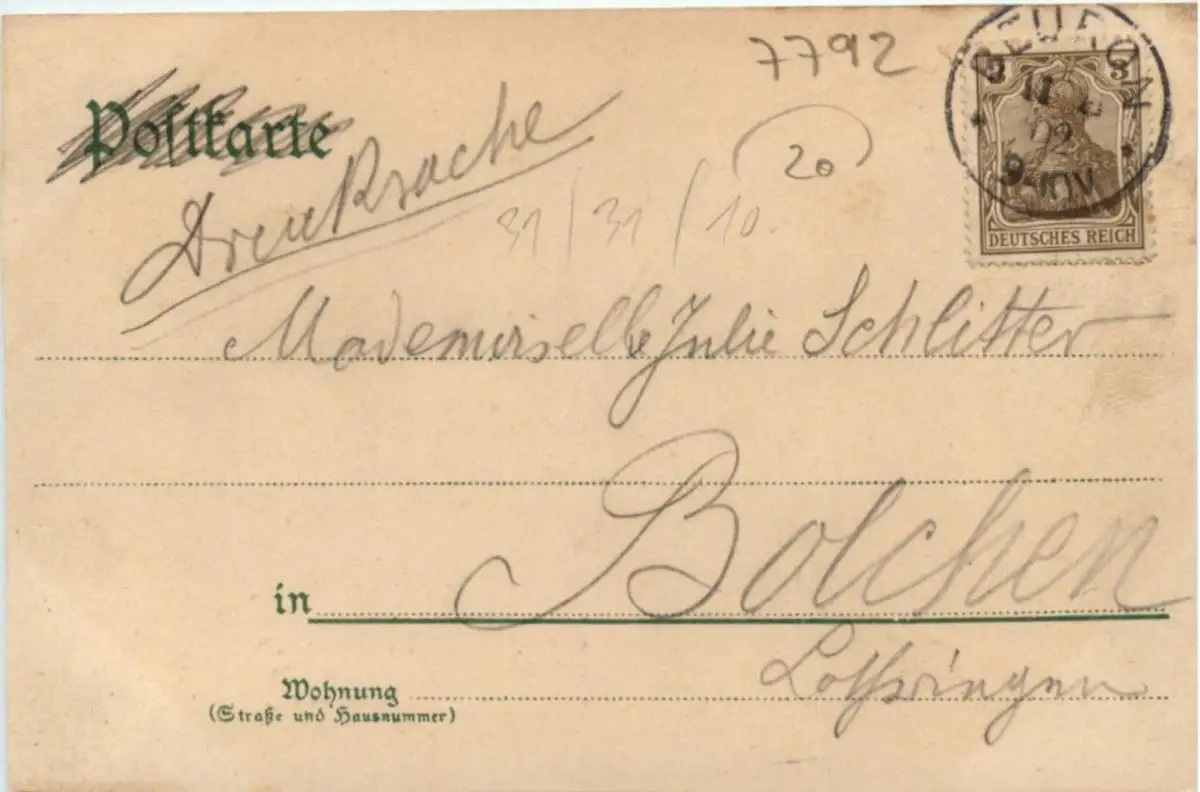 7792
BEURON
3 3
11 6
02
9-10V.
DEUTSCHES REICH
Postkarte
Drucksache
20
31/31/10.
Mademoiselle Julie Schlitter
in Bolchen
Lothringen
Wohnung
(Straße und Hausnummer)